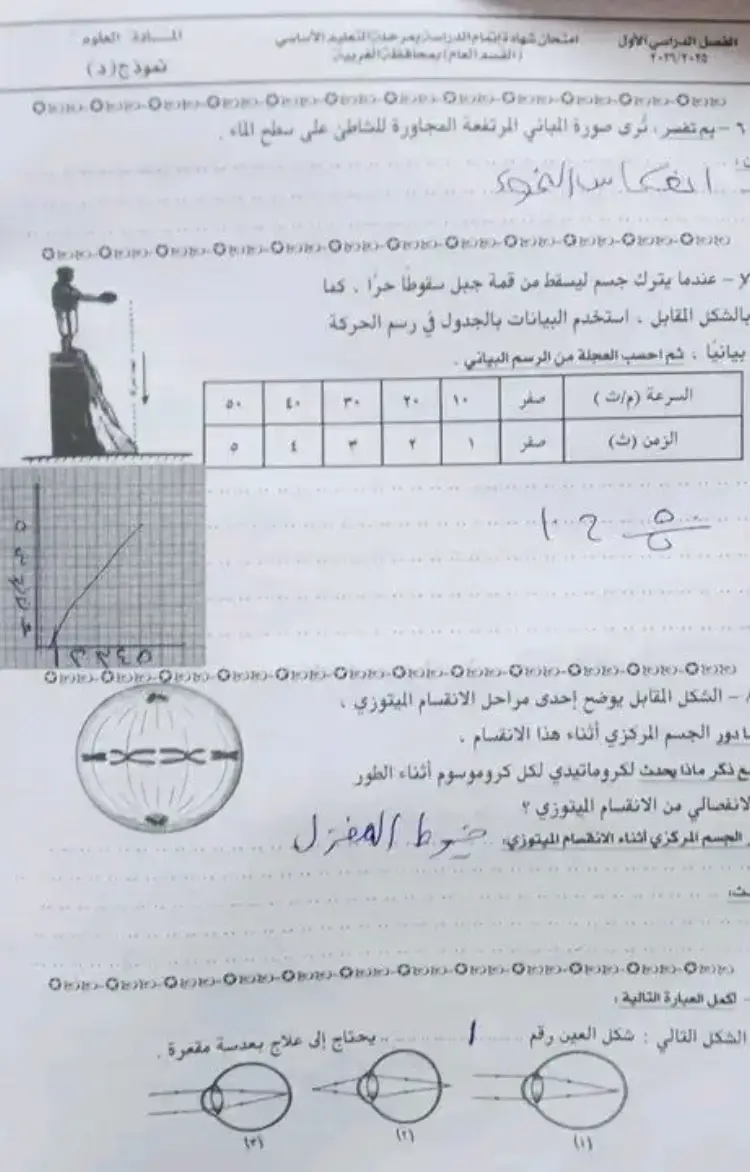 الفصل الدراسي الأول
٢٠٢٦/٢٠٢٥
امتحان شهادة إتمام الدراسة بمرحلة التعليم الأساسي
(القسم العام) بمحافظة الغربية
المـــادة العلوم
نموذج (د)
٦ - بم تفسر، تُرى صورة المباني المرتفعة المجاورة للشاطئ على سطح الماء .
انعكاس الضوء
٧ - عندما يترك جسم ليسقط من قمة جبل سقوطًا حرًا ، كما
بالشكل المقابل ، استخدم البيانات بالجدول في رسم الحركة
بيانيًا ، ثم احسب العجلة من الرسم البياني .
السرعة (م/ث) صفر ١٠ ٢٠ ٣٠ ٤٠ ٥٠
الزمن (ث) صفر ١ ٢ ٣ ٤ ٥
- الشكل المقابل يوضح إحدى مراحل الانقسام الميتوزي ،
دور الجسم المركزي أثناء هذا الانقسام .
ذكر ماذا يحدث لكروماتيدي لكل كروموسوم أثناء الطور
الانفصالي من الانقسام الميتوزي ؟
الجسم المركزي أثناء الانقسام الميتوزي:
خيوط المغزل
- أكمل العبارة التالية :
الشكل التالي : شكل العين رقم ١ يحتاج إلى علاج بعدسة مقعرة .
(١) (٢) (٣)